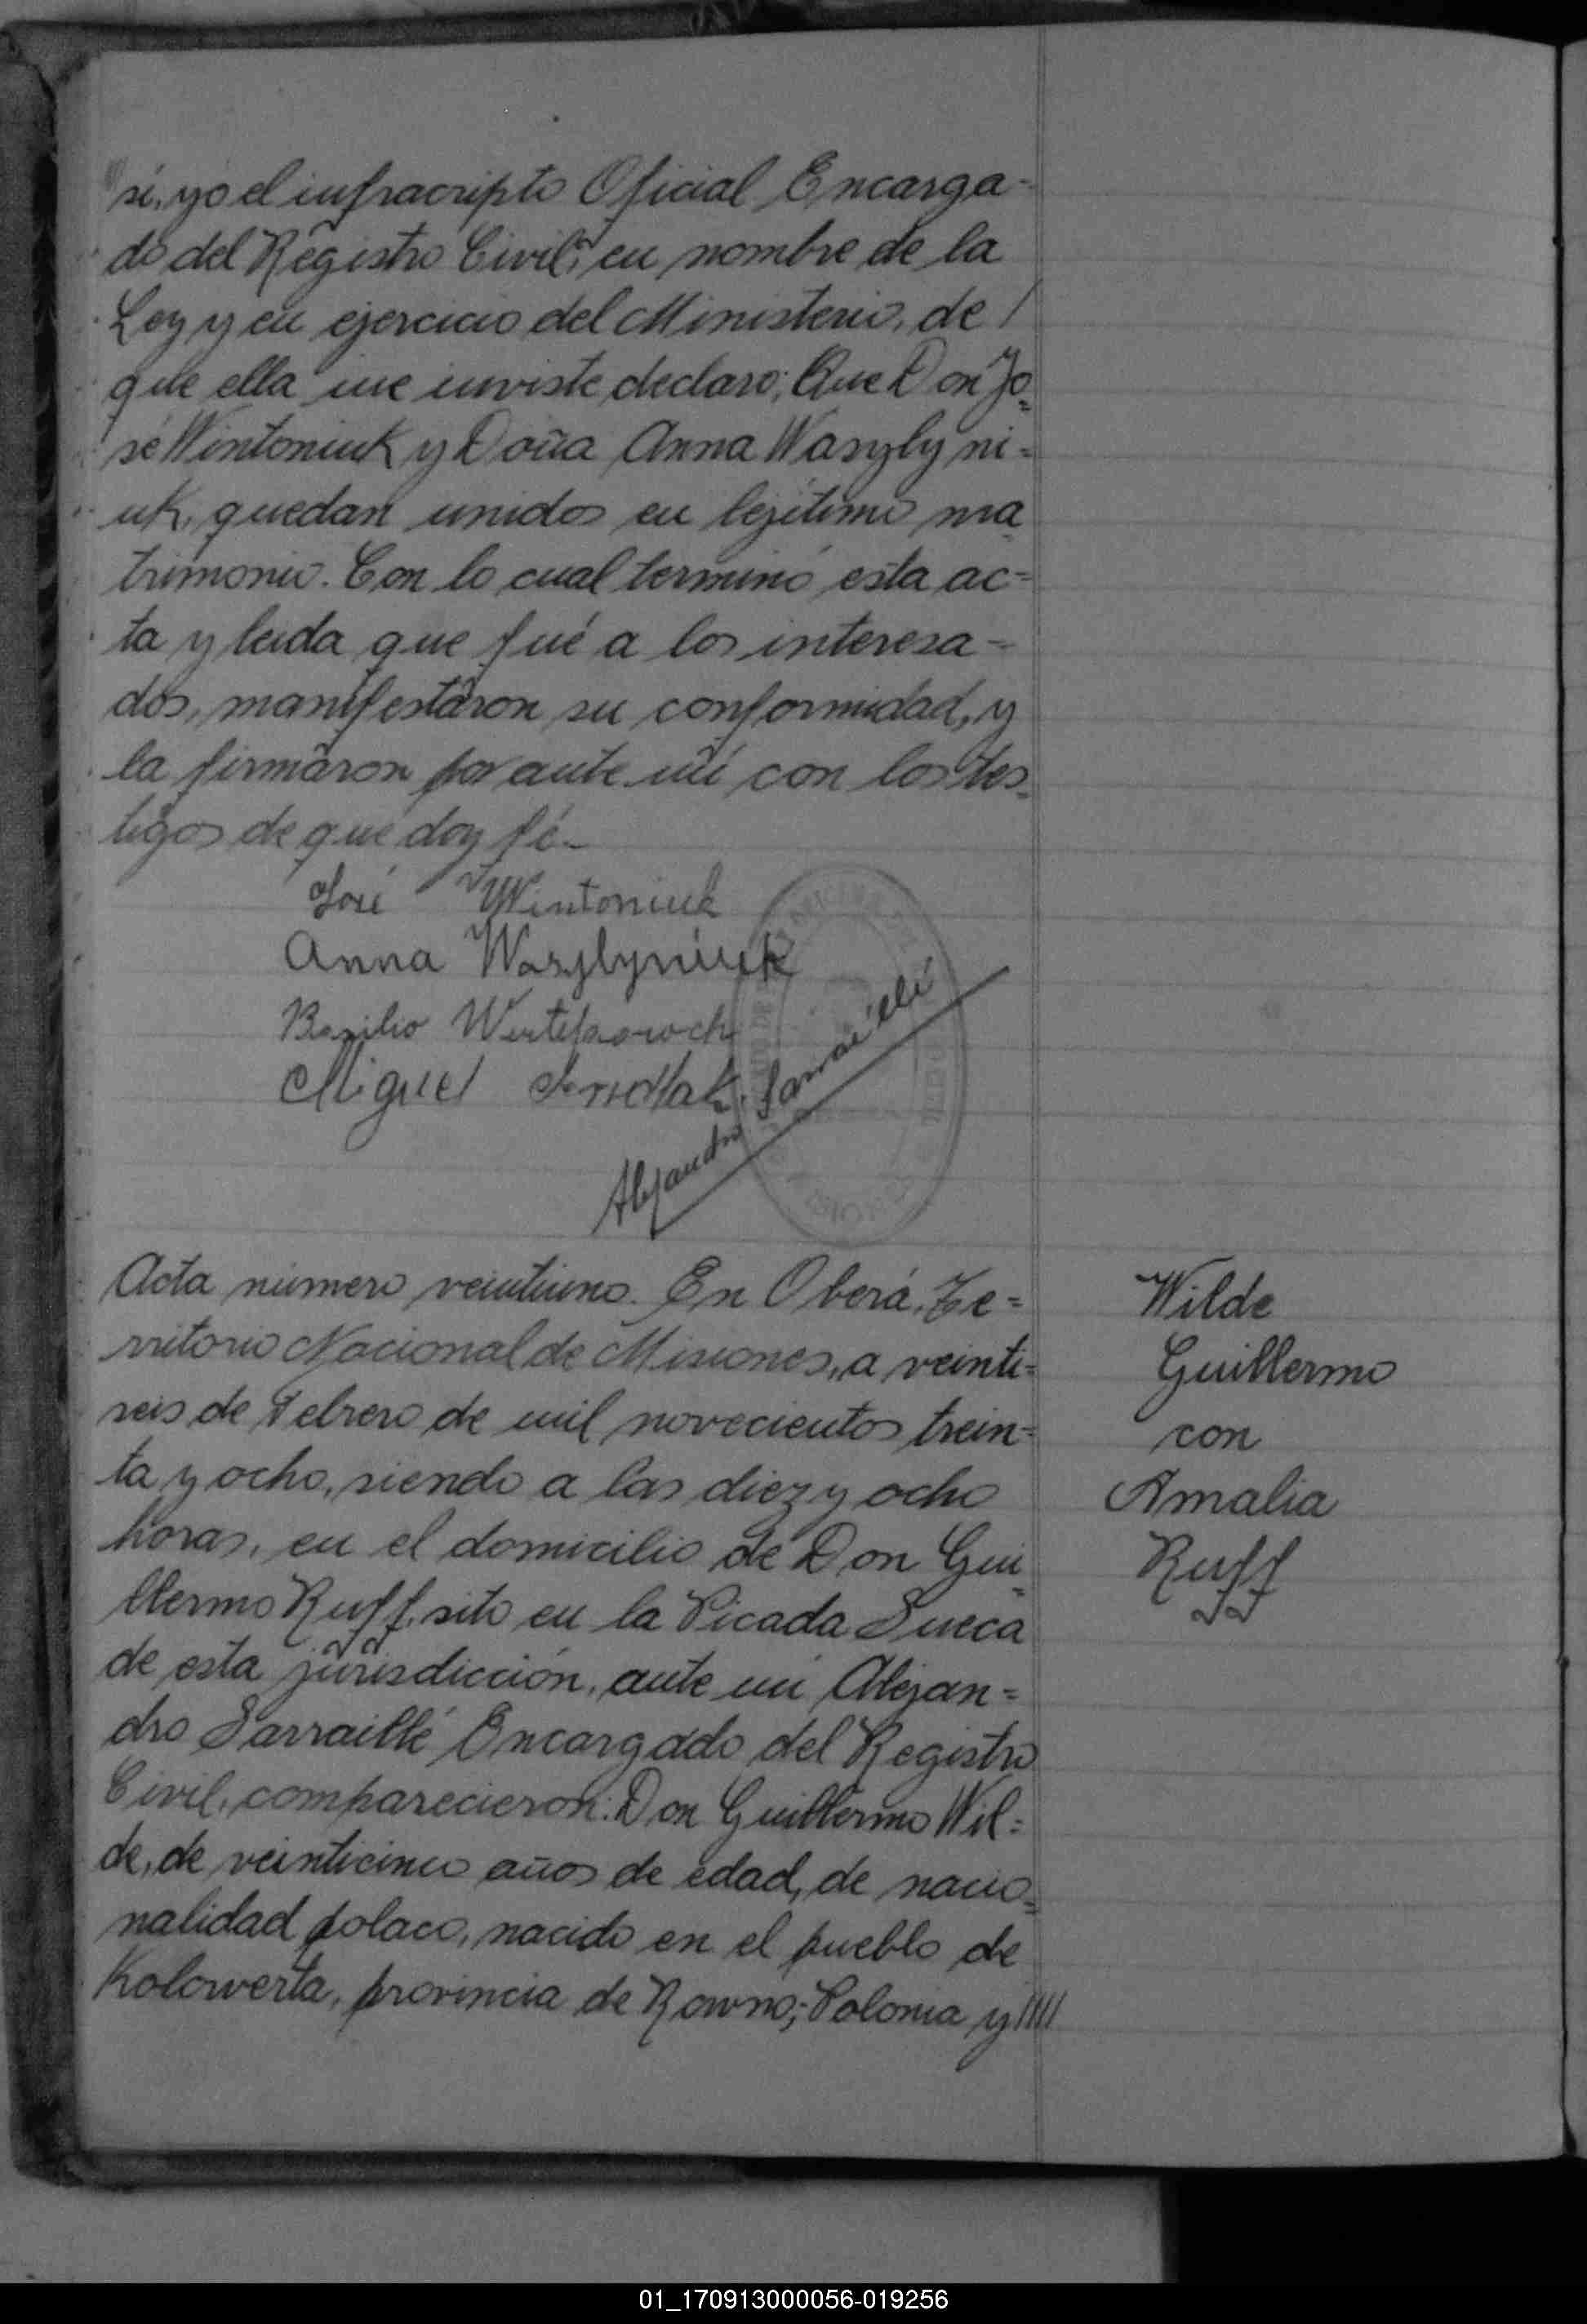 sí, yo el infracripto Oficial Encarga-
do del Registro Civil, en nombre de la
Ley y en ejercicio del Ministerio, de /
que ella me inviste declaro; Que Don Jo=
sé Wintoniuk y Doña Anna Wasylyni=
uk, quedan unidos en lejítimo ma
trimonio. Con lo cual terminó esta ac=
ta y leida que fué a los interesa=
dos, manifestaron su conformidad, y
la firmaron por ante mí con los tes=
tigos de que doy fé.-
José Wintoniuk
Anna Wasylyniuk
Basilio
Miguel
Alejandro Sarraillé
Acta número veintiuno. En Oberá, Te=
rritorio Nacional de Misiones, a veinti=
seis de Febrero de mil novecientos trein=
ta y ocho, siendo a las diez y ocho
horas, en el domicilio de Don Gui=
llermo Ruff, sito en la Picada Sueca
de esta jurisdicción, ante mí Alejan=
dro Sarraillé Encargado del Registro
Civil, comparecieron: Don Guillermo Wil=
de, de veinticinco años de edad, de nacio=
nalidad polaco, nacido en el pueblo de
Kolowerta, provincia de Rowno; Polonia y ////
Wilde
Guillermo
con
Amalia
Ruff
01_170913000056-019256